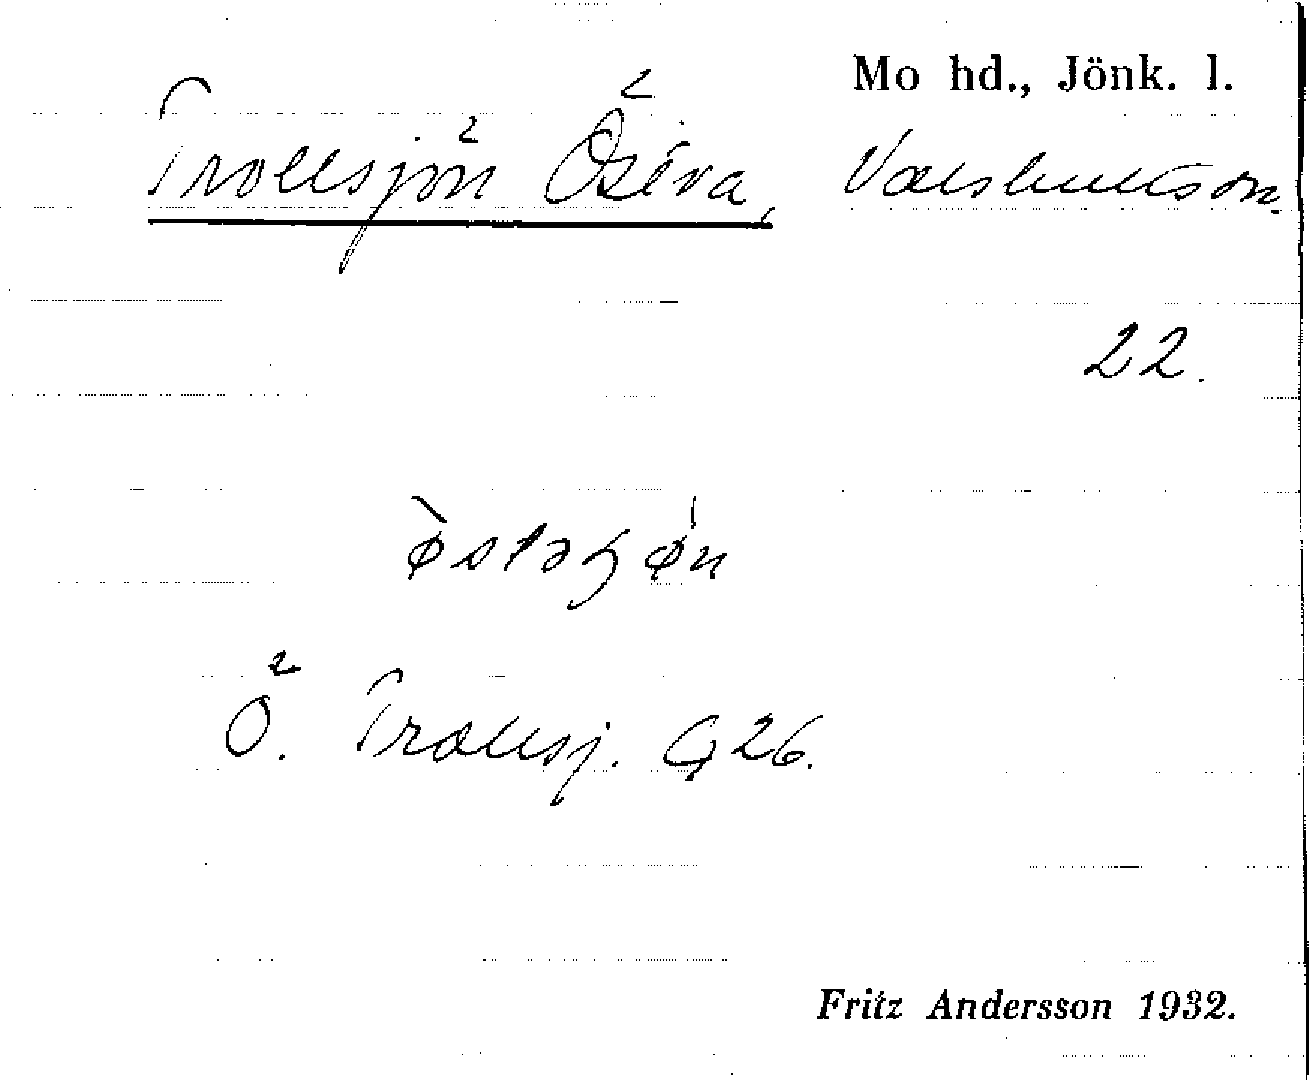 Mo hd., Jönk. l.
Trollsjön Östra, Valshultssn.
22.
Ö. Trollsj. G 26.
Fritz Andersson 1932.